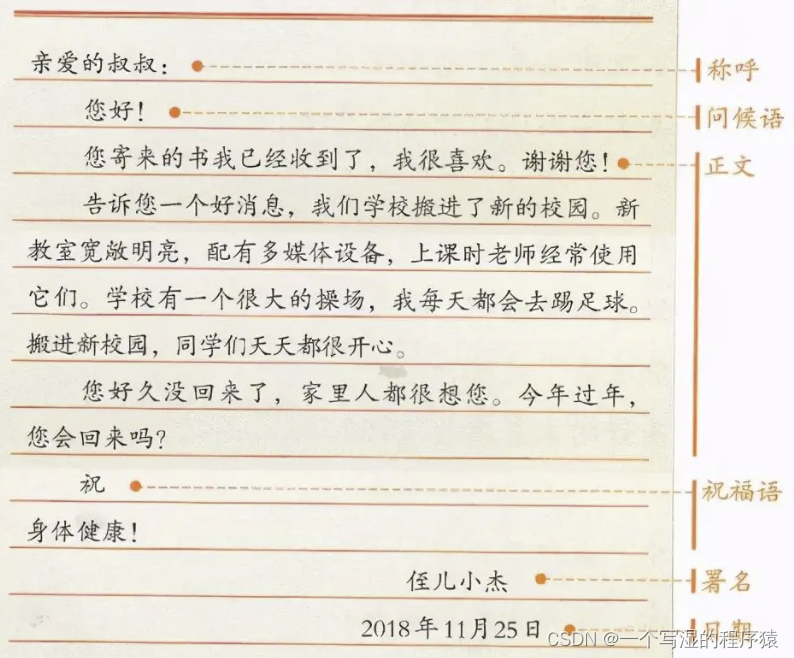 亲爱的叔叔： 称呼
您好！ 问候语
您寄来的书我已经收到了，我很喜欢。谢谢您！ 正文
告诉您一个好消息，我们学校搬进了新的校园。新
教室宽敞明亮，配有多媒体设备，上课时老师经常使用
它们。学校有一个很大的操场，我每天都会去踢足球。
搬进新校园，同学们天天都很开心。
您好久没回来了，家里人都很想您。今年过年，
您会回来吗？
祝 祝福语
身体健康！
侄儿小杰 署名
2018年11月25日 日期
CSDN @一个写湿的程序猿